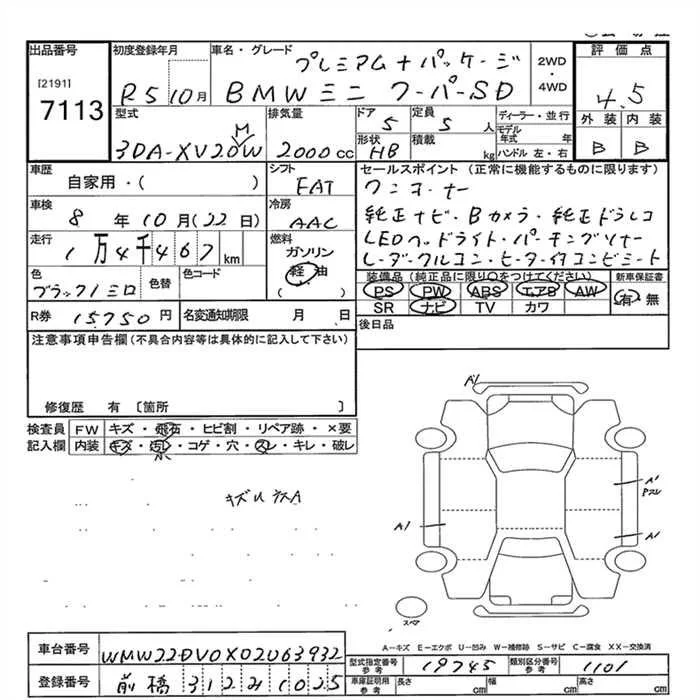 出品番号
[2191]
7113
初度登録年月
R5 10月
車名・グレード
プレミアム+パッケージ
BMWミニ クーパーSD
2WD
・
4WD
評価点
4.5
外装 内装
B B
型式
3DA-XV20MW
排気量
2000cc
ドア
5
定員
5人
ディーラー・並行
形状
HB
積載
kg
モデル年式 年
ハンドル 左・右
車歴
自家用・( )
シフト
FAT
車検
8年10月(22日)
冷房
AAC
走行
1万4千467km
燃料
ガソリン
軽油
( )
色
ブラック/ミロ
色替
色コード
R券 15750円
名変通知期限 月 日
セールスポイント(正常に機能するものに限ります)
ワンオーナー
純正ナビ・Bカメラ・純正ドラレコ
LEDヘッドライト・パーキングソナー
レーダークルコン・ヒーター付コンビシート
装備品(純正品に限り○をつけてください)
PS PW ABS エアB AW
SR ナビ TV カワ
新車保証書
有 無
後日品
注意事項申告欄(不具合内容等は具体的に記入して下さい)
修復歴 有 〔箇所 〕
検査員
記入欄
FW キズ・飛石・ヒビ割・リペア跡・×要
内装 キズ・汚れ・コゲ・穴・スレ・キレ・破レ
小
A1
A1
Pスレ
A1
A1
スペア
A-キズ E-エクボ U-凹み W-補修跡 S-サビ C-腐食 XX-交換済
車台番号
WMW22DV0X02U63932
登録番号
前橋312み1025
型式指定番号
参考
19745
類別区分番号
参考
1101
車庫証明用
参考
長さ cm
幅 cm
高さ cm